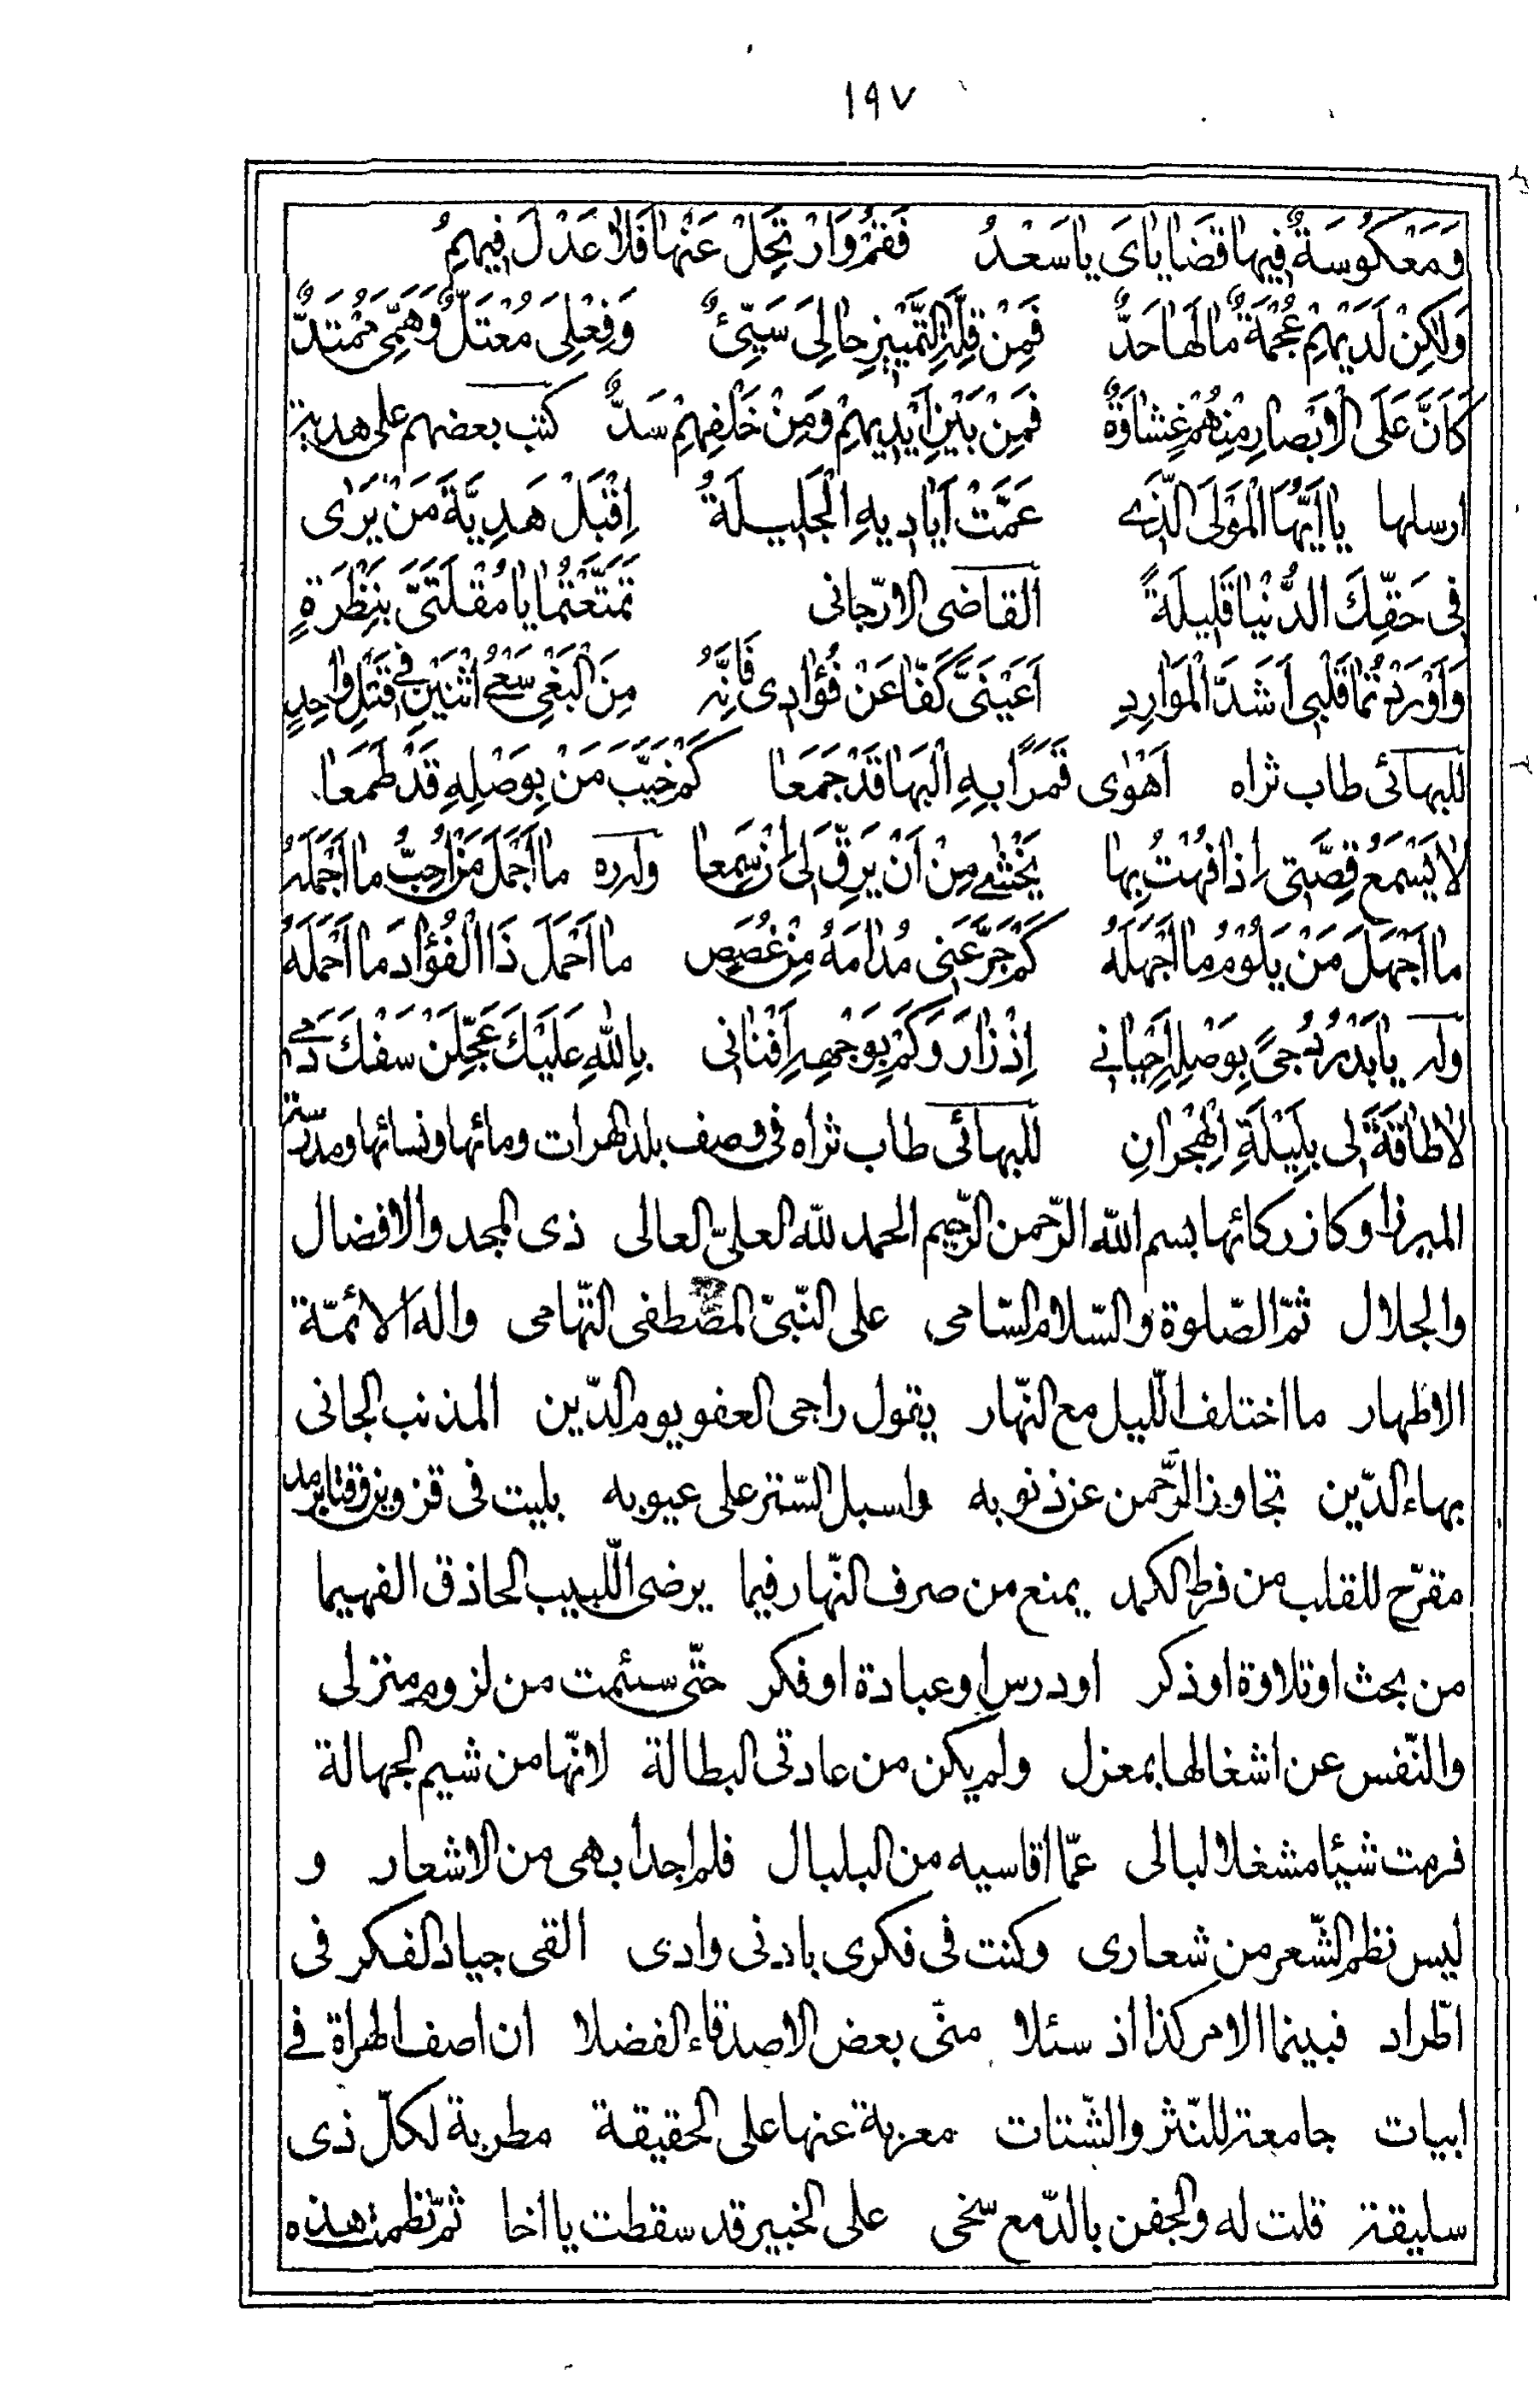 ١٩٧
وَمَعْكُوسَةٌ فِيهَا قَضَايَاىَ يَا سَعْدُ فَقُمْ وَارْتَحِلْ عَنْهَا فَلَا عَدْلَ فِيهِمِ
وَلَكِنْ لَدَيْهِمْ عُجْمَةٌ مَا لَهَا حَدٌّ فَمِنْ قِلَّةِ التَّمْيِيزِ حَالِىَ سَيِّئٌ وَفِعْلِىَ مُعْتَلٌّ وَهَمِّىَ مُمْتَدٌّ
كَأَنَّ عَلَى الْاَبْصَارِ مِنْهُمْ غِشَاوَةٌ فَمِنْ بَيْنِ اَيْدِيهِمْ وَمِنْ خَلْفِهِمْ سَدٌّ كتب بعضهم على هدية
ارسلها يَا اَيُّهَا الْمَوْلَى الَّذِى عَمَّتْ اَيَادِيهِ الْجَلِيلَةُ اِقْبَلْ هَدِيَّةَ مَنْ يَرَى
فِى حَقِّكَ الدُّنْيَا قَلِيلَةً القاضى الارّجانى تَمَتَّعْتُمَا يَا مُقْلَتَىَّ بِنَظْرَةٍ
وَاَوْرَدْتُمَا قَلْبِى اَشَدَّ الْمَوَارِدِ اَعَيْنَىَّ كُفَّا عَنْ فُؤَادِى فَاِنَّهُ مِنَ الْبَغْىِ سَعْىُ اثْنَيْنِ فِى قَتْلِ وَاحِدٍ
للبهائى طاب ثراه اَهْوَى قَمَرًا بِهِ الْبَهَا قَدْ جَمَعَا كَمْ خَيَّبَ مَنْ بِوَصْلِهِ قَدْ طَمَعَا
لَا يَسْمَعُ قِصَّتِى اِذَا فُهْتُ بِهَا يَخْشَى مِنْ اَنْ يَرِقَّ لِى اِنْ سَمِعَا وله ره مَا اَجْمَلَ مَنْ اُحِبُّ مَا اَجْمَلَهُ
مَا اَجْهَلَ مَنْ يَلُومُ مَا اَجْهَلَهُ كَمْ جَرَّعَنِى مُدَامَهُ مِنْ غُصَصٍ مَا اَحْمَلَ ذَا الْفُؤَادَ مَا اَحْمَلَهُ
وله يَا بَدْرَ دُجىً بِوَصْلِهِ اَحْيَانِى اِذْ زَارَ وَكَمْ بِوَجْهِهِ اَفْنَانِى بِاللهِ عَلَيْكَ عَجِّلَنْ سَفْكَ دَمِى
لَا طَاقَةَ لِى بِلَيْلَةِ الْهِجْرَانِ للبهائى طاب ثراه فى وصف بلد الهرات ومائها ونسائها ومدرسة
الميرزا وكازركائها بسم الله الرّحمن الرّحيم الحمد للّه العلىّ العالى ذى المجد والافضال
والجلال ثمّ الصّلوة والسّلام السّامى على النّبىّ المصطفى التّهامى واله الائمّة
الاطهار ما اختلف اللّيل مع النّهار يقول راجى العفو يوم الدّين المذنب الجانى
بهاء الدّين تجاوز الرّحمن عن ذنوبه واسبل السّتر على عيوبه بليت فى قزوين وقتا برمد
مقرّح للقلب من فرط الكمد يمنع من صرف النّهار فيما يرضى اللّبيب الحاذق الفهيما
من بحث او تلاوة او ذكر او درس او عبادة او فكر حتّى سئمت من لزوم منزلى
والنّفس عن اشغالها بمعزل ولم يكن من عادتى البطالة لانّها من شيم الجهالة
فرمت شيئا مشغلا لبالى عمّا اقاسيه من البلبال فلم اجد ابهى من الاشعار و
ليس نظم الشّعر من شعارى وكنت فى فكرى بادنى وادى القى جياد الفكر فى
اطّراد فبينما الامر كذا اذ سئلا منّى بعض الاصدقاء الفضلا ان اصف الهراة فى
ابيات جامعة للنّثر والشّتات معربة عنها على الحقيقة مطربة لكلّ ذى
سليقة قلت له والجفن بالدّمع سخى على الخبير قد سقطت يا اخا ثمّ نظمت هذه